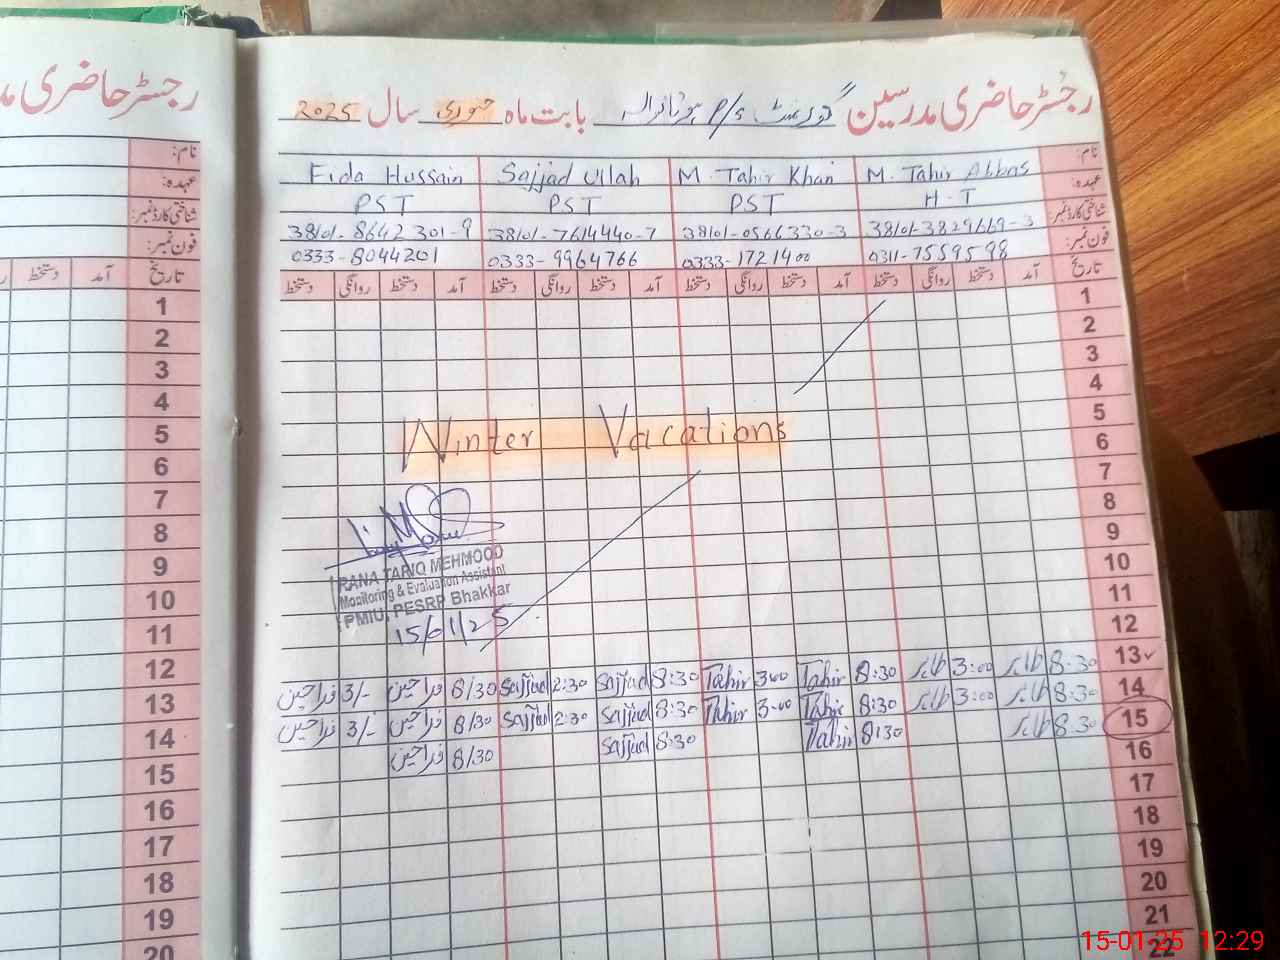 رجسٹر حاضری مدرسین گورنمنٹ P/S بابت ماہ جنوری سال 2025
رجسٹر حاضری
نام:
Fida Hussain Sajjad Ullah M. Tahir Khan M. Tahir Abbas نام:
عہدہ:
PST PST PST H.T عہدہ:
شناختی کارڈ نمبر:
38101-8642301-9 38101-7614440-7 38101-0566330-3 38101-3829669-3 شناختی کارڈ نمبر:
فون نمبر:
0333-8044201 0333-9964766 0333-1721400 0311-7559598 فون نمبر:
تاریخ آمد دستخط
تاریخ آمد دستخط روانگی دستخط آمد دستخط روانگی دستخط آمد دستخط روانگی دستخط آمد دستخط روانگی دستخط
1
2
3
4
5
6
7
8
9
10
11
12
13
14
15
16
17
18
19
20
1
2
3
4
5
6
7
8
9
10
11
12
Winter Vacations
RANA TARIQ MEHMOOD
Monitoring & Evaluation Assistant
PMIU, PESRP Bhakkar
15/01/25
3/- 8/30 Sajjad 2:30 Sajjad 8:30 Tahir 3:00 Tahir 8:30 طاہر 3:00 طاہر 8:30 13
3/- 8/30 Sajjad 2:30 Sajjad 8:30 Tahir 3:00 Tahir 8:30 طاہر 3:00 طاہر 8:30 14
8/30 Sajjad 8:30 Tahir 8:30 طاہر 8:30 15
16
17
18
19
20
21
22
15-01-25 12:29